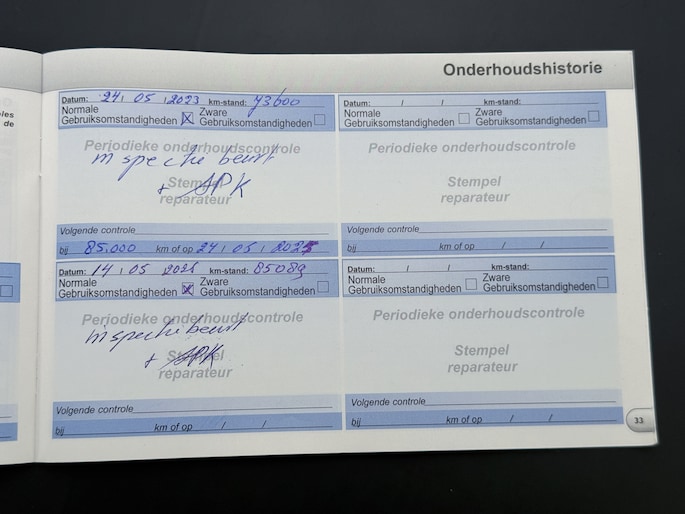 Onderhoudshistorie
les
de
Datum: 24 / 05 / 2023 km-stand: 73600
Normale Gebruiksomstandigheden X Zware Gebruiksomstandigheden
Periodieke onderhoudscontrole
inspectie beurt
Stempel
+ APK
reparateur
Volgende controle
bij 85.000 km of op 24 / 05 / 2025
Datum: / / km-stand:
Normale Gebruiksomstandigheden Zware Gebruiksomstandigheden
Periodieke onderhoudscontrole
Stempel
reparateur
Volgende controle
bij km of op / /
Datum: 14 / 05 / 2025 km-stand: 85089
Normale Gebruiksomstandigheden X Zware Gebruiksomstandigheden
Periodieke onderhoudscontrole
inspectie beurt
Stempel
+ APK
reparateur
Volgende controle
bij km of op / /
Datum: / / km-stand:
Normale Gebruiksomstandigheden Zware Gebruiksomstandigheden
Periodieke onderhoudscontrole
Stempel
reparateur
Volgende controle
bij km of op / /
33